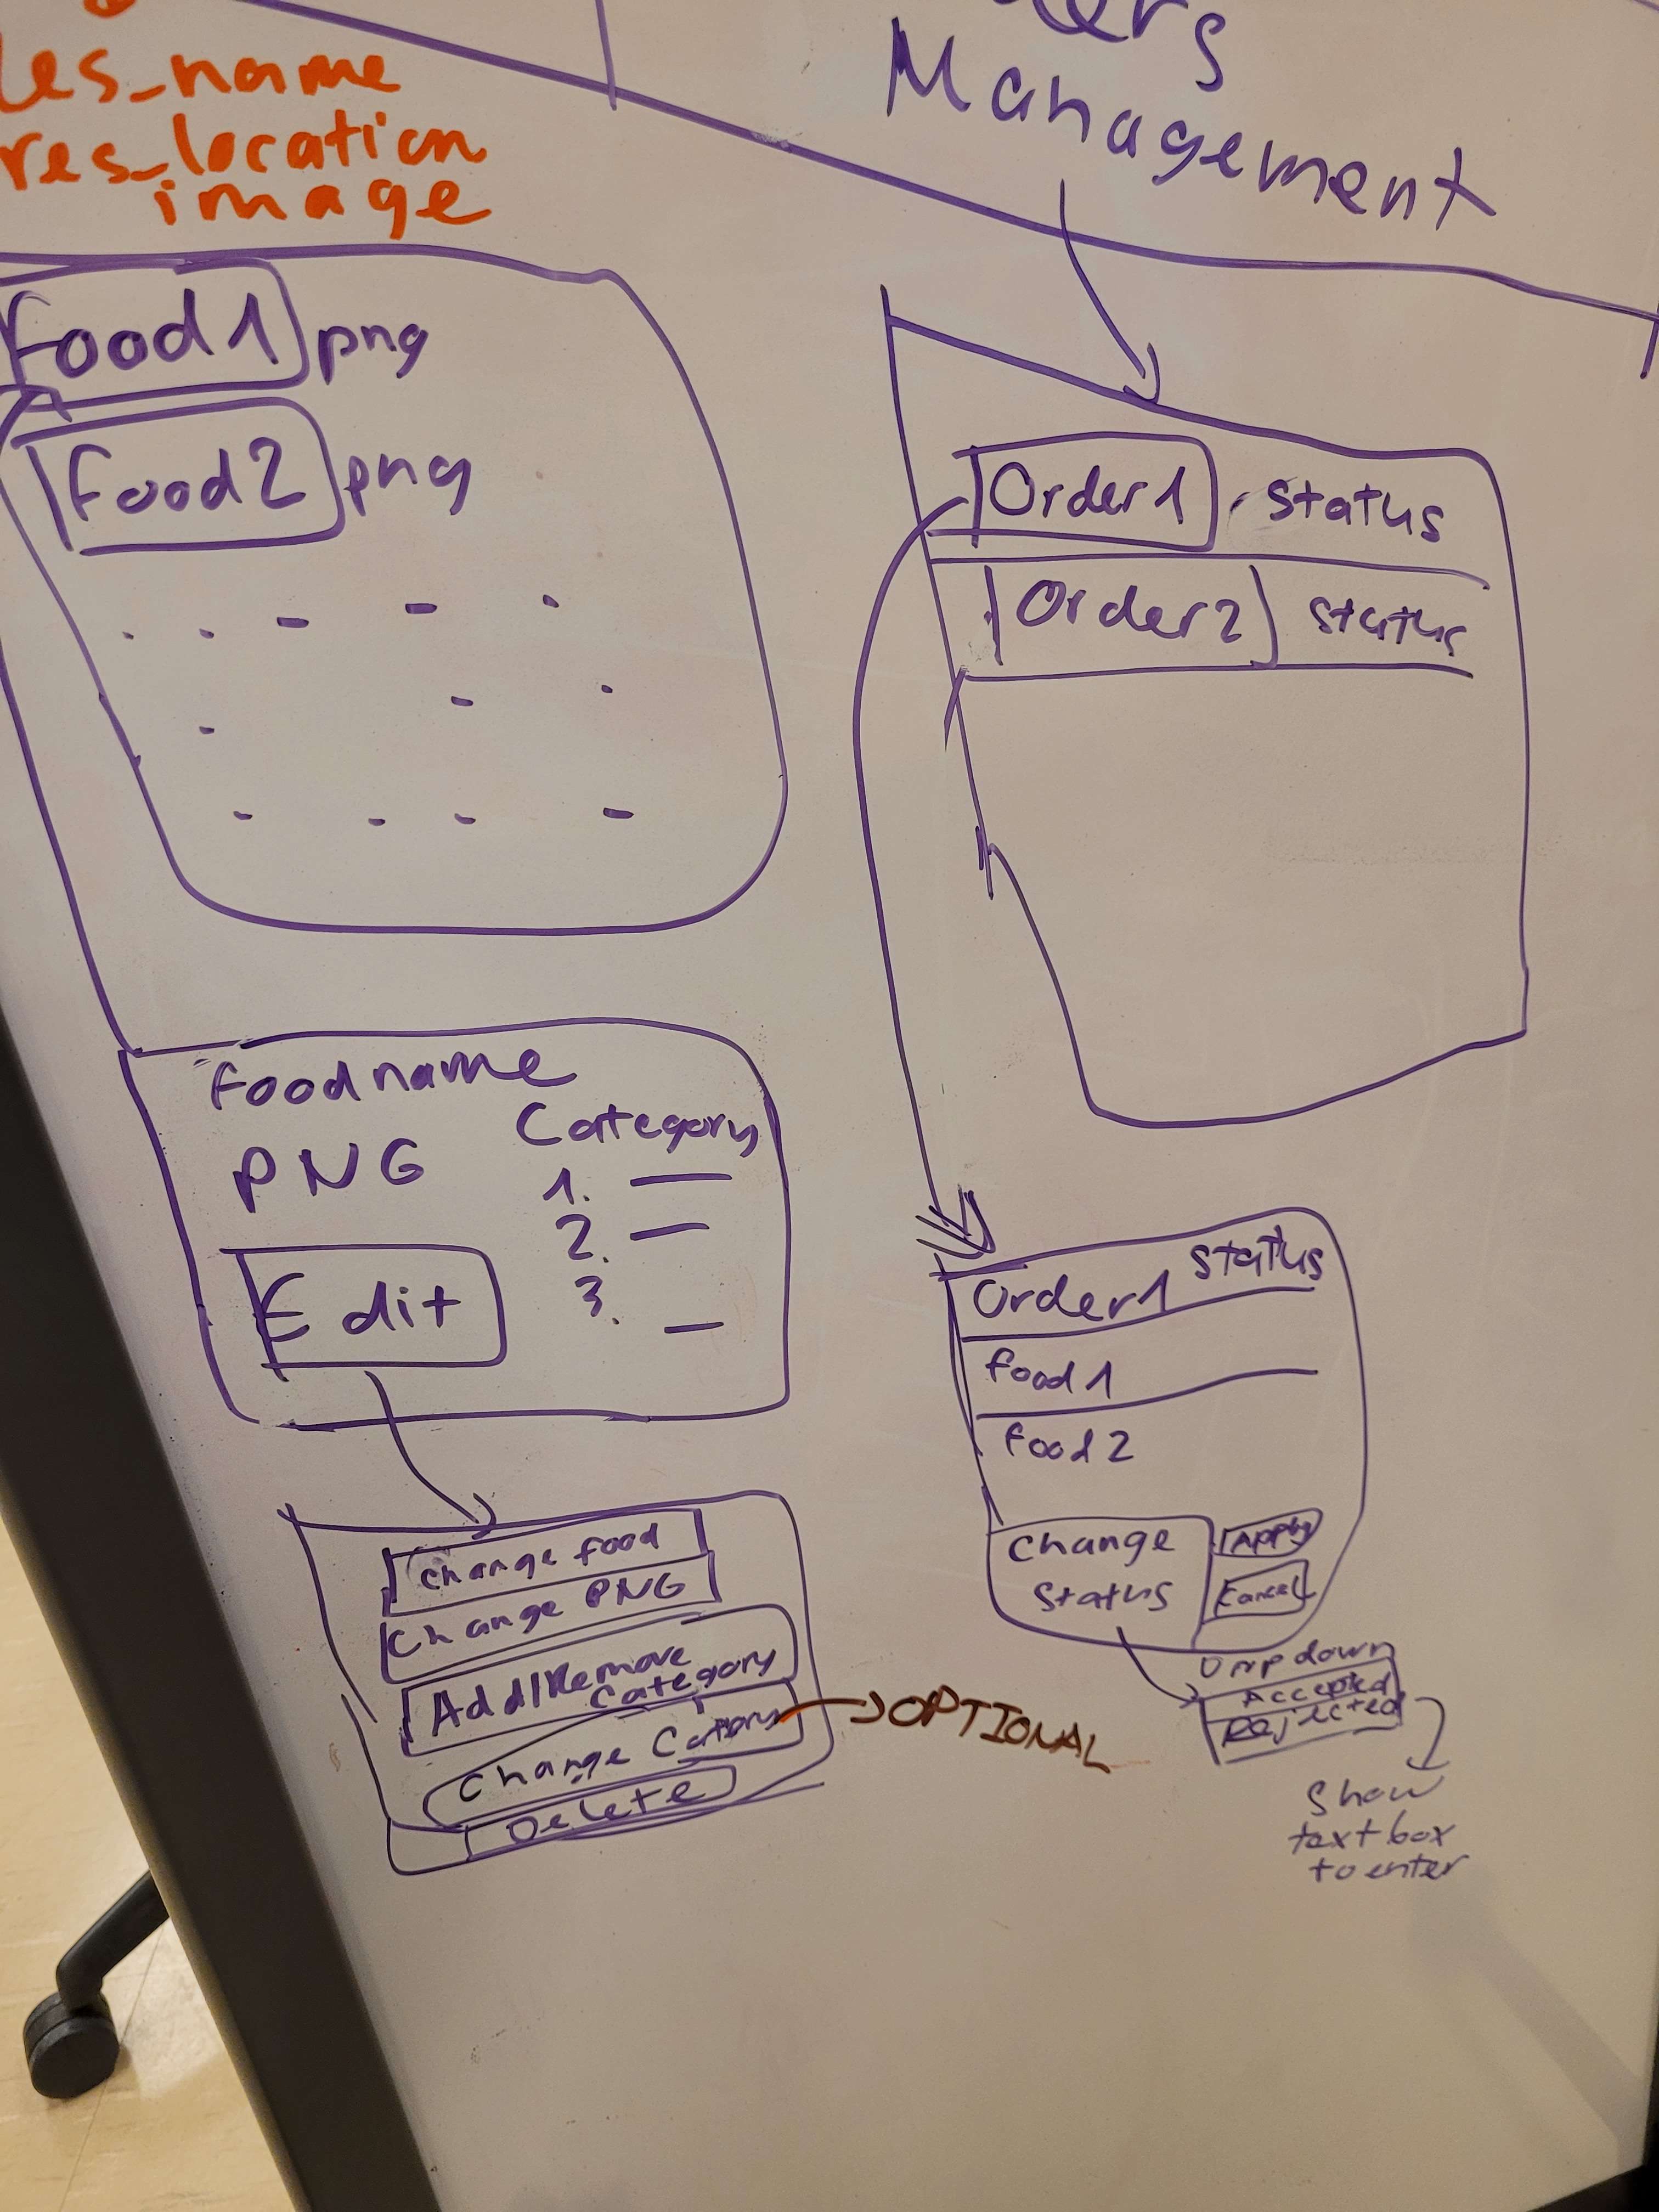 res_name
res_location
image
Management
Food1 png
Food2 png
foodname
Category
PNG
1.
2.
3.
Edit
Change food
Change PNG
Add/Remove
Category
Change
OPTIONAL
Delete
Order1 status
Order2 status
Order1 status
food1
food2
Change
status
Apply
Cancel
Dropdown
Accepted
Rejected
Show
text box
to enter